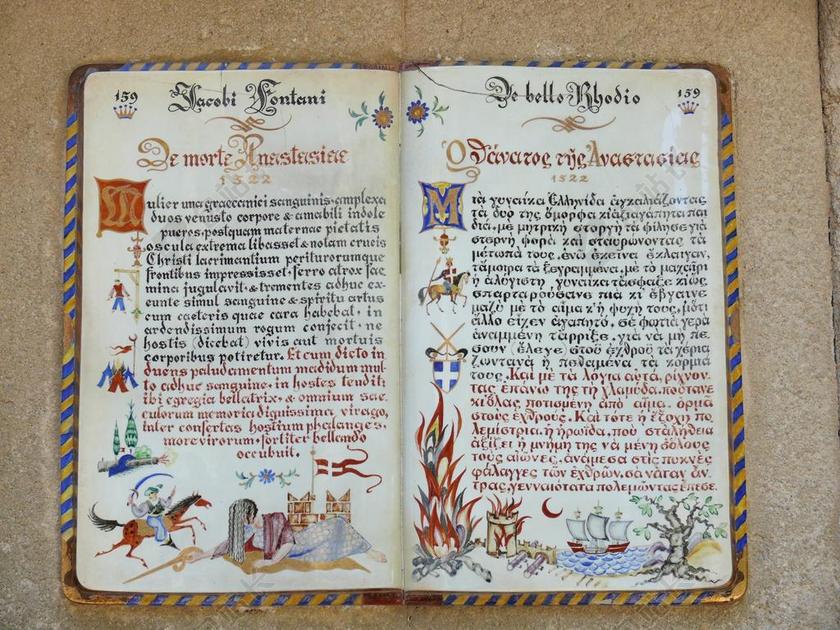 159 Jacobi Fontani
De morte Anastasiae
1522
Mulier una graecanici sanguinis·amplexa
duos venusto corpore & amabili indole
pueros·postquam maternae pietatis
oscula extrema libasset & notam crucis
Christi lacrimantium periturorumque
frontibus impressisset·ferro atrox fae
mina jugulavit·& trementes adhuc ex-
eunte simul sanguine & spiritu artus
cum caeteris quae cara habebat· in
ardendissimum rogum conjecit· ne
hostis (dicebat) vivis aut mortuis
corporibus potiretur. Et cum dicto in
duens paludamentum madidum mul-
to adhuc sanguine· in hostes tendit:
ibi egregia bellatrix· & omnium sae
culorum memoria dignissima virago,
inter confertas hostium phalanges·
more virorum· fortiter bellando
occubuit.
De bello Rhodio 159
Ὁ θάνατος τῆς Ἀναστασίας
1522
Μιὰ γυναίκα Ἑλληνίδα ἀγκαλιάζοντας
τὰ δυό της ὄμορφα κι ἀξιαγάπητα παι
διά, μὲ μητρικὴ στοργὴ τὰ φίλησε γιὰ
στερνὴ φορὰ καὶ σταυρώνοντας τὰ
μέτωπά τους, ἐνῶ ἐκεῖνα ἔκλαιγαν,
τἀμοιρα τὰ ξεγραμμένα, μὲ τὸ μαχαίρι
ἡ ἀλύγιστη γυναίκα τἄσφαξε κι ὅπως
σπαρταρούσανε πιὰ κι ἔβγαινε
μαζὺ μὲ τὸ αἷμα κ' ἡ ψυχή τους, μ' ὅτι
ἄλλο εἶχεν ἀγαπητό, σὲ φωτιὰ γερὰ
ἀναμμένη τἄρριξε, γιὰ νὰ μὴ πέ
σουν (ἔλεγε) στοῦ ἐχθροῦ τὰ χέρια
ζωντανὰ ἢ πεθαμένα τὰ κορμιά
τους. Καὶ μὲ τὰ λόγια αὐτά, ρίχνον-
τας ἐπάνω της τὴ χλαμύδα, ποὔτανε
κιόλας ποτισμένη ἀπὸ αἷμα, ὁρμᾶ
στοὺς ἐχθρούς. Καὶ τότε ἡ ἔξοχη πο
λεμίστρια, ἡ ἡρωΐδα, ποὺ στ' ἀλήθεια
ἀξίζει ἡ μνήμη της νὰ μένη σ' ὅλους
τοὺς αἰῶνες, ἀνάμεσα στὶς πυκνὲς
φάλαγγες τῶν ἐχθρῶν, σὰ νἄταν ἄν
τρας, γενναιότατα πολεμώντας ἔπεσε.